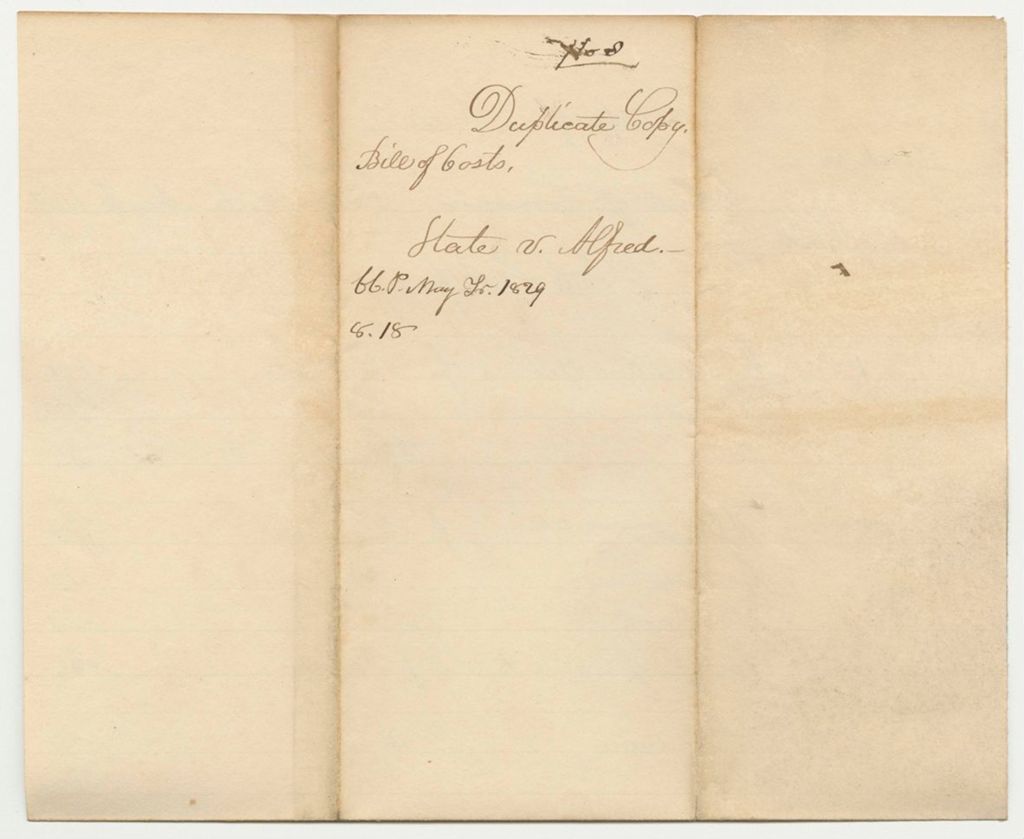 No 8
Duplicate Copy.
Bill of Costs,
State v. Alfred.—
C.C.P. May Tr. 1829
8.18